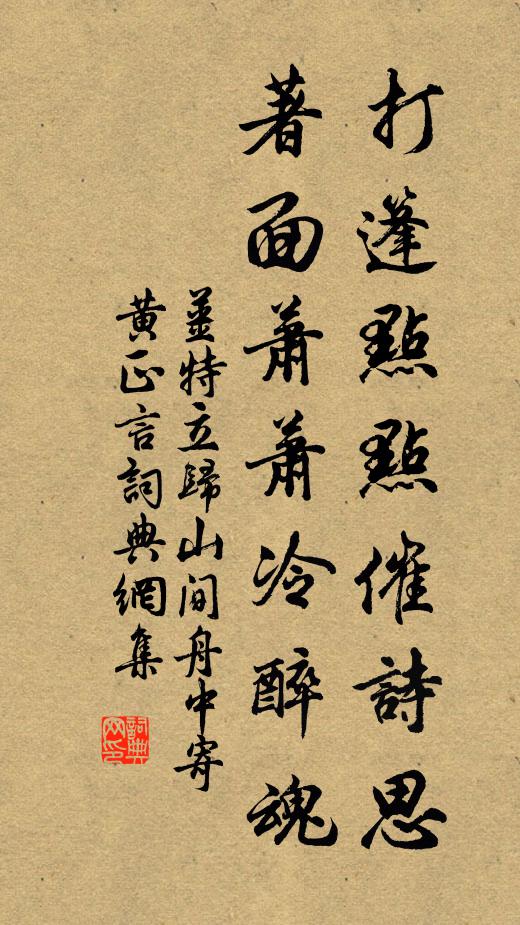 打篷點點催詩思
著面蕭蕭冷醉魂
姜特立歸山間舟中寄
黃正言詞典網集
詞典網印